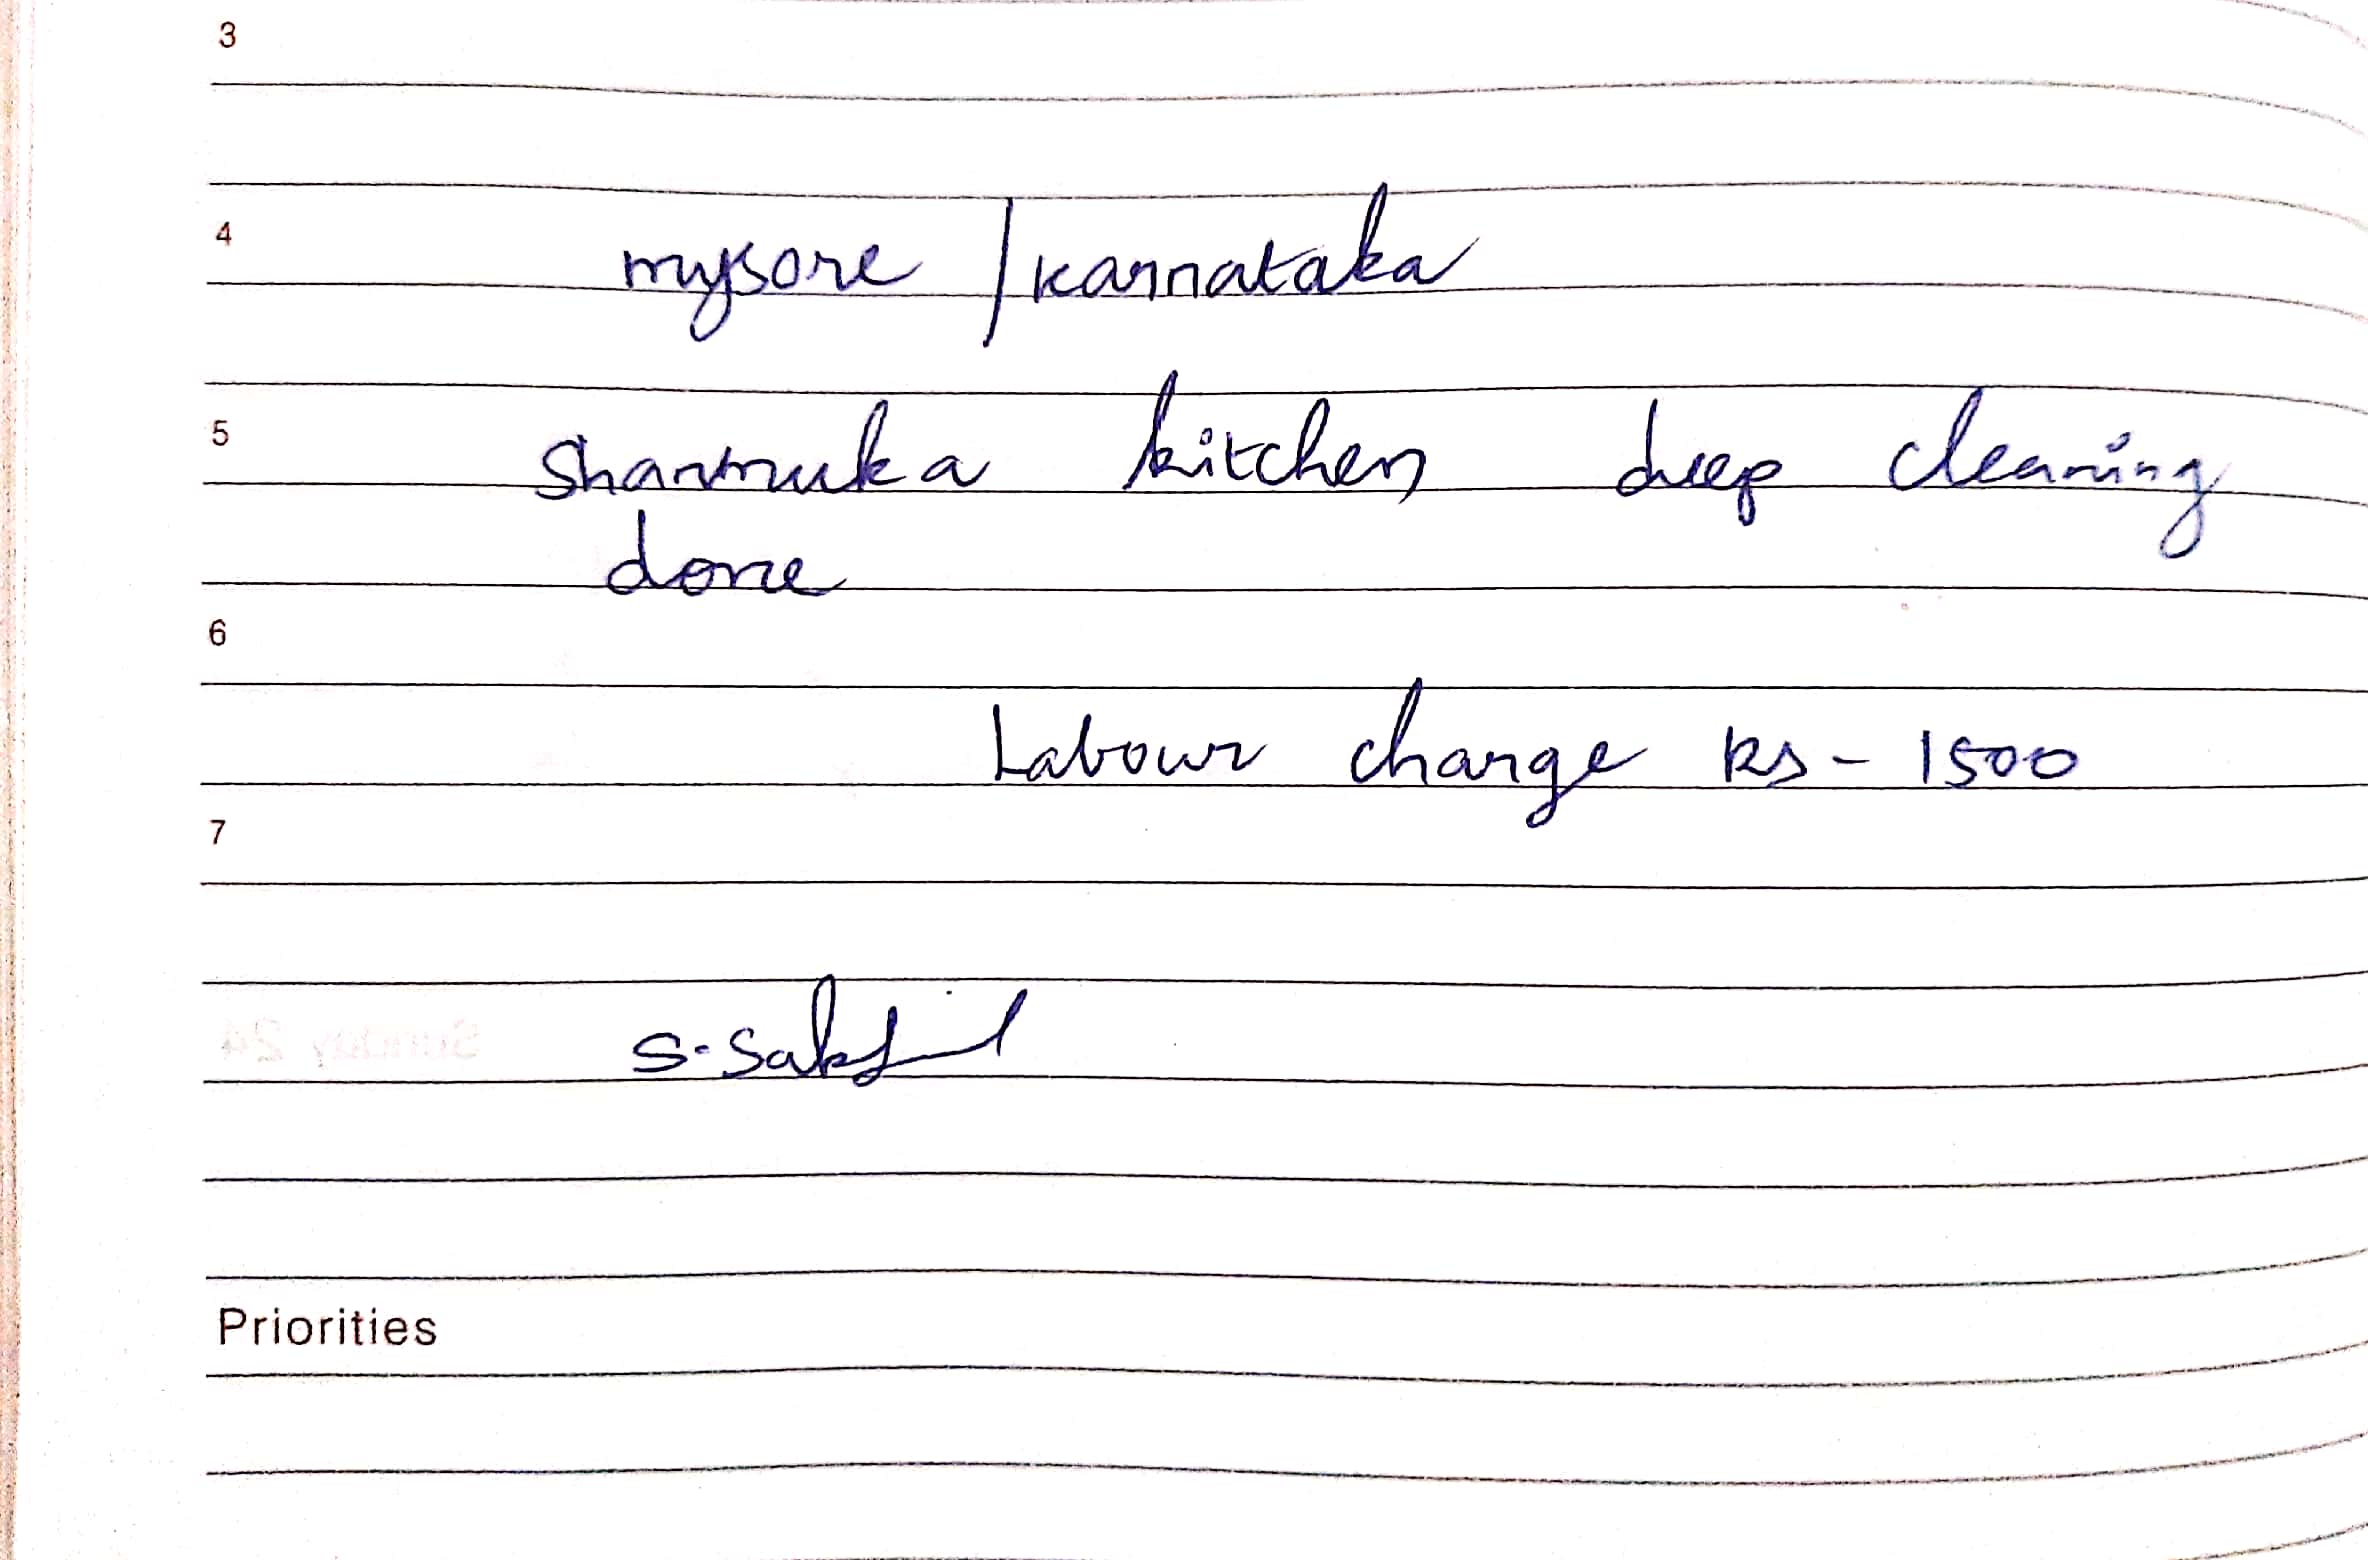 3
4
mysore / karnataka
5
Shanmuka kitchen deep cleaning
done
6
Labour charge Rs - 1500
7
Sunday 24
Priorities